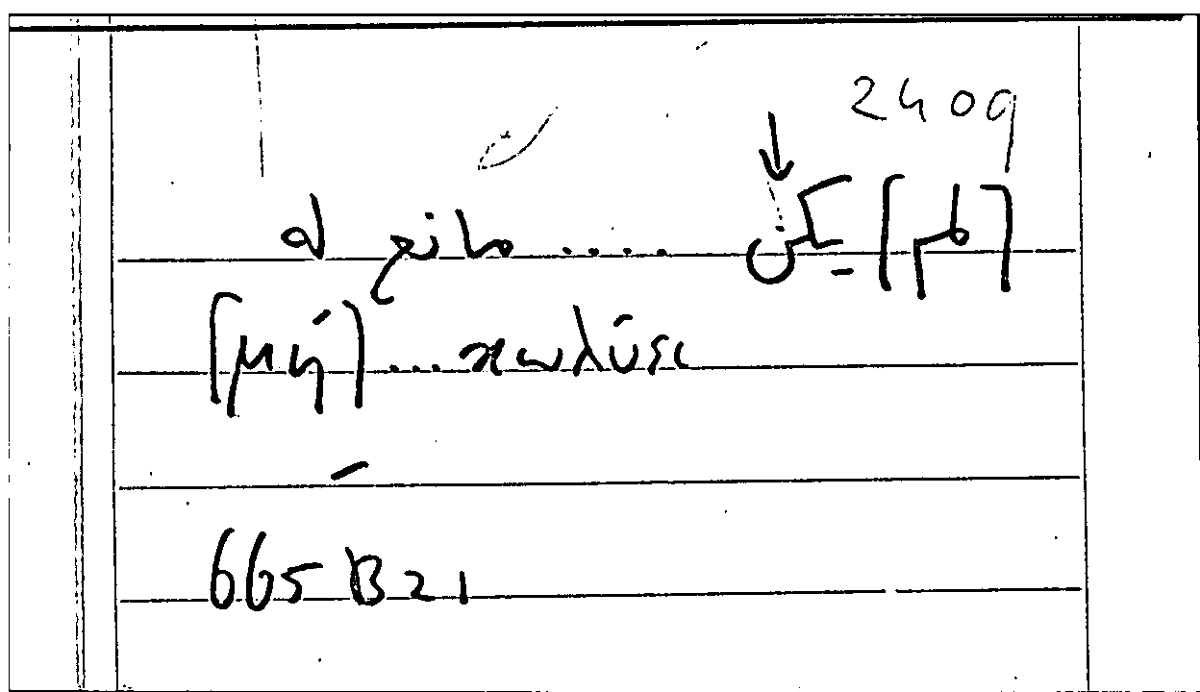 2409
[لم] يكن .... مانع له
[μή] ... κωλύει
665 B 21